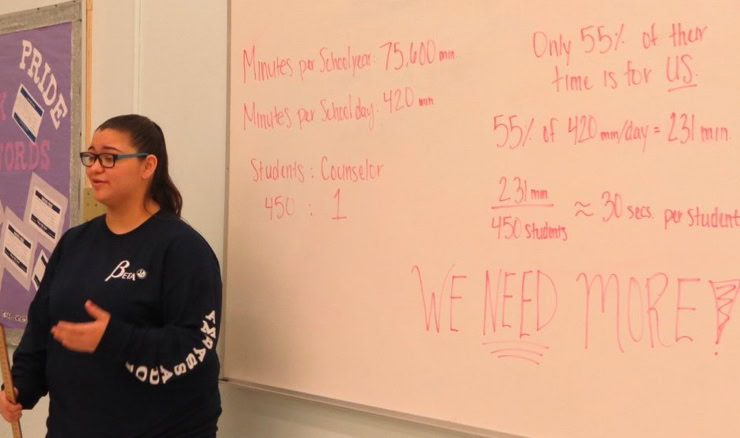 PRIDE
ORDS
BETA
Minutes per Schoolyear: 75,600 min
Minutes per School day: 420 min
Students : Counselor
450 : 1
Only 55% of their
time is for US.
55% of 420 min/day = 231 min.
231 min
450 students
≈ 30 secs per student
WE NEED MORE!